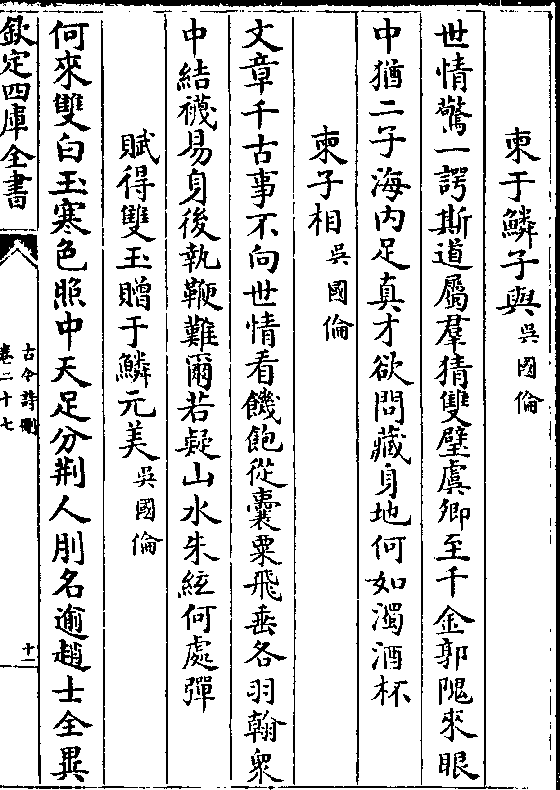 柬于鱗子與吳國倫
世情驚一諤斯道屬羣猜雙璧虞卿至千金郭隗來眼
中猶二子海内足真才欲問藏身地何如濁酒杯
柬子相吳國倫
文章千古事不向世情看饑飽從囊粟飛垂各羽翰衆
中結襪易身後執鞭難爾若疑山水朱絃何處彈
賦得雙玉贈于鱗元美吳國倫
何來雙白玉寒色照中天足分荆人刖名逾趙士全異
欽定四庫全書
古今詩刪
卷二十七
十二